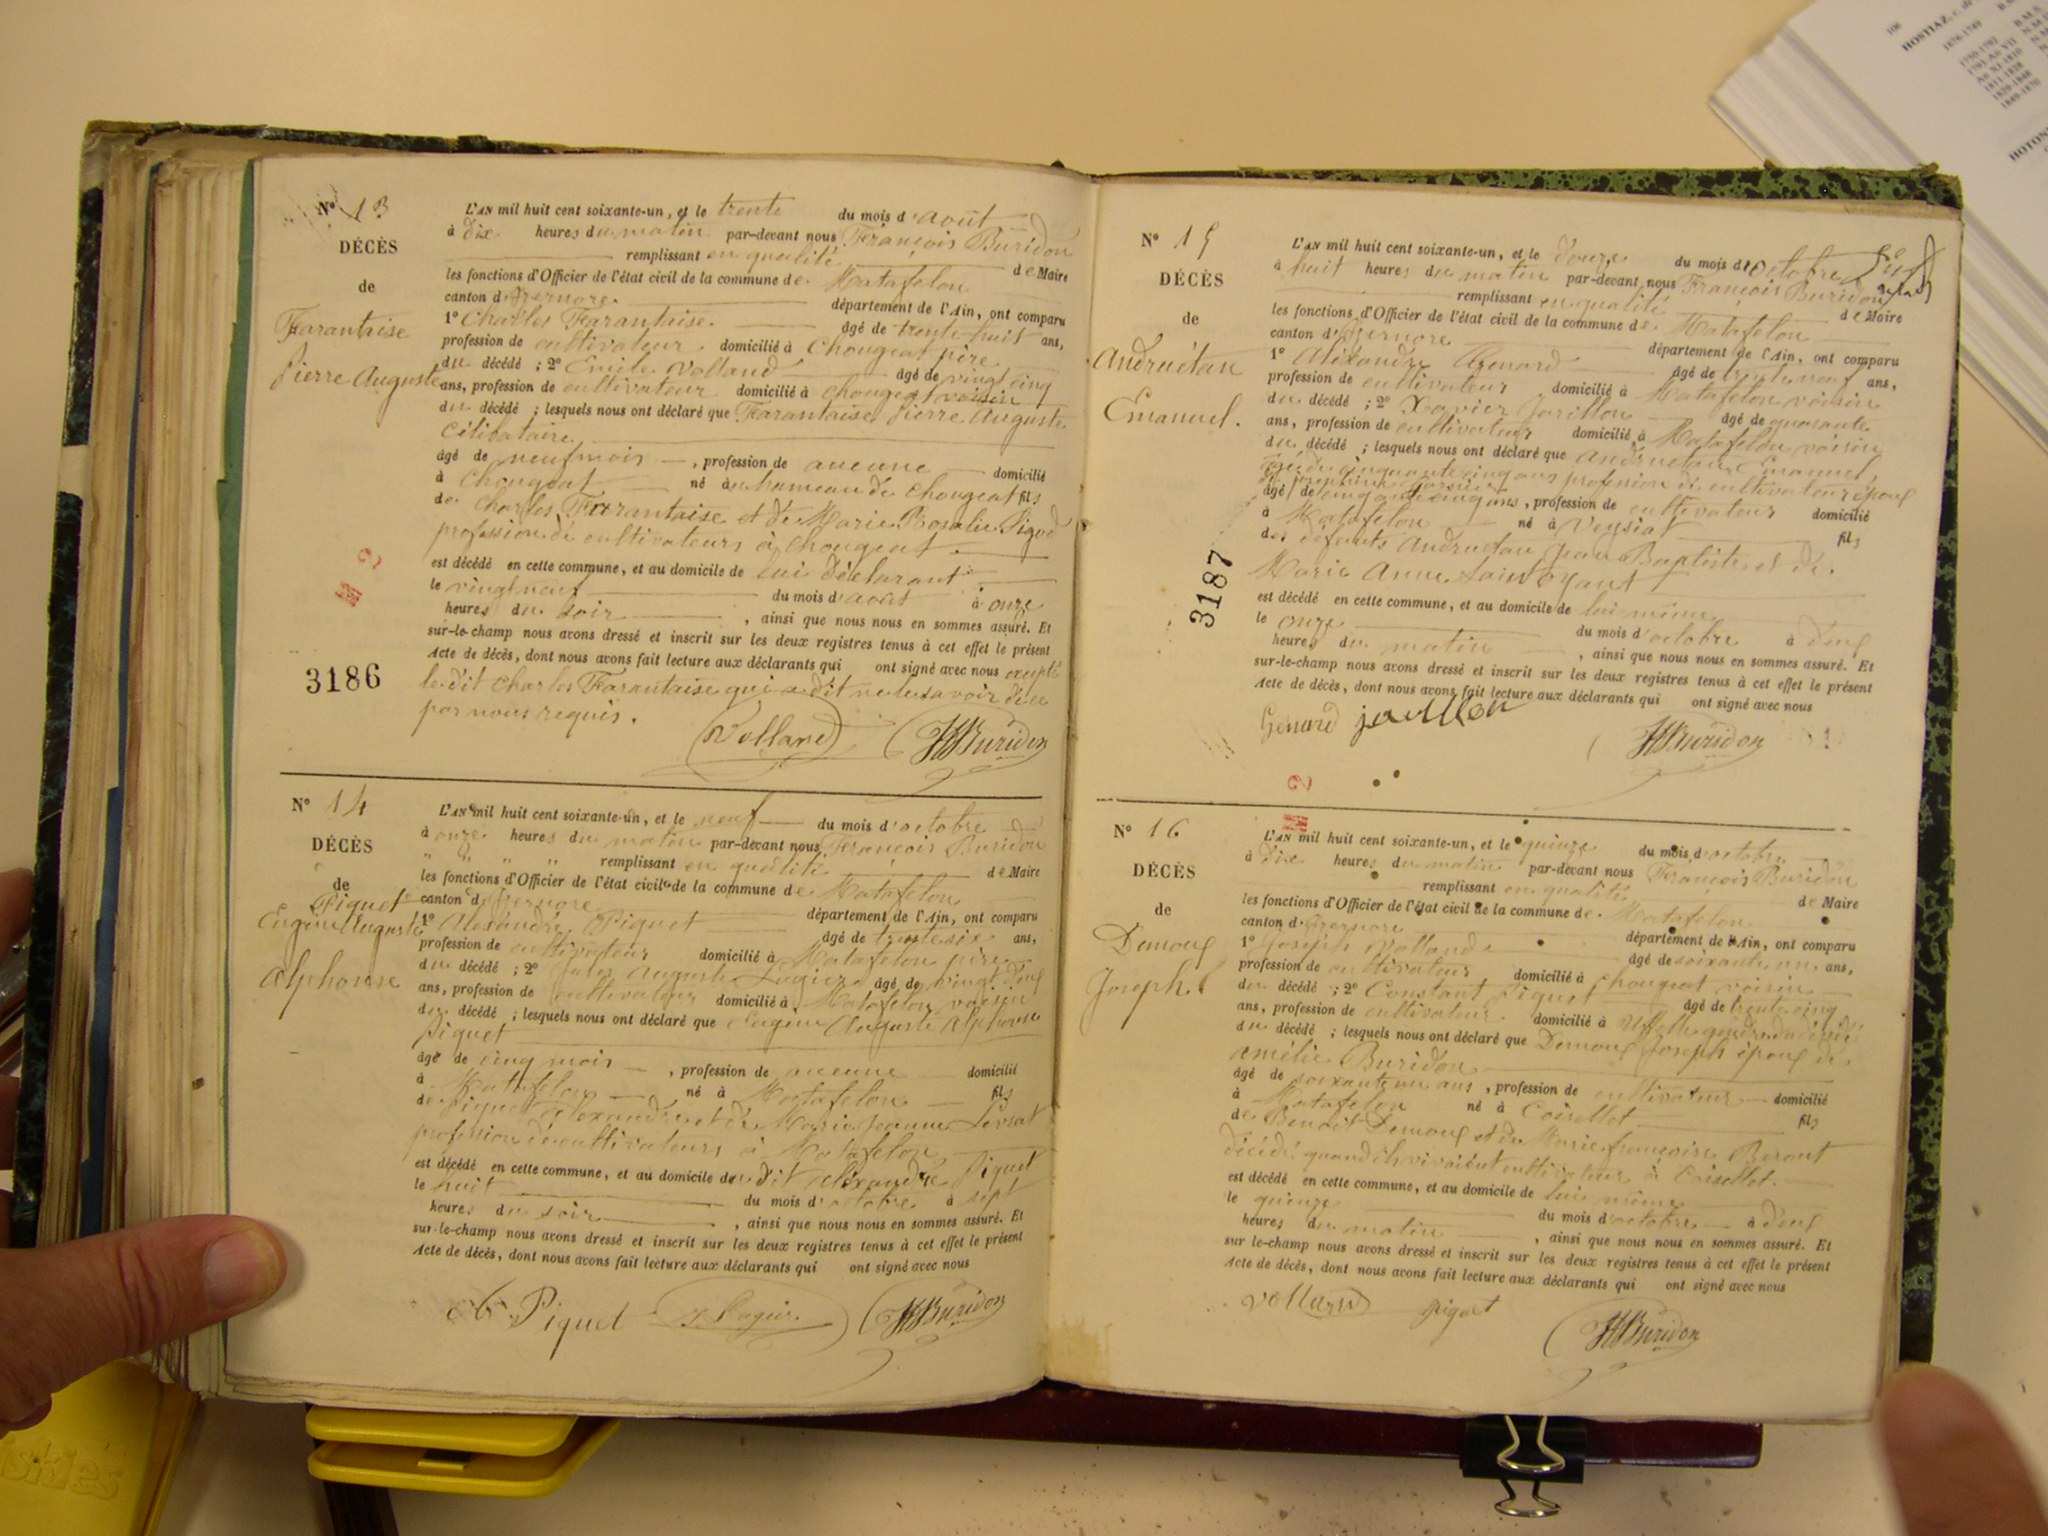 N° 13
DÉCÈS
de
Farantaise
Pierre Auguste
3186
L'AN mil huit cent soixante-un, et le trente du mois d'août
à dix heures du matin par-devant nous François Buridon
remplissant en qualité de Maire
les fonctions d'Officier de l'état civil de la commune de Matafelon
canton d'Izernore département de l'Ain, ont comparu
1° Charles Farantaise. âgé de trente huit ans,
profession de cultivateur domicilié à Chougeat père
du décédé ; 2° Emile Volland âgé de vingt cinq
ans, profession de cultivateur domicilié à Chougeat voisin
du décédé ; lesquels nous ont déclaré que Farantaise Pierre Auguste
célibataire
âgé de neuf mois , profession de aucune domicilié
à Chougeat né au hameau de Chougeat fils
de Charles Farantaise et de Marie Rosalie Pigod
profession de cultivateurs à Chougeat
est décédé en cette commune, et au domicile de lui déclarant
le vingt neuf du mois d'août à onze
heures du soir , ainsi que nous nous en sommes assuré. Et
sur-le-champ nous avons dressé et inscrit sur les deux registres tenus à cet effet le présent
Acte de décès, dont nous avons fait lecture aux déclarants qui ont signé avec nous excepté
le dit Charles Farantaise qui a dit ne le savoir de ce
par nous requis.
Volland Buridon
N° 14
DÉCÈS
de
Piquet
Eugène Auguste
Alphonse
L'AN mil huit cent soixante-un, et le neuf du mois d'octobre
à onze heures du matin par-devant nous François Buridon
remplissant en qualité de Maire
les fonctions d'Officier de l'état civil de la commune de Matafelon
canton d'Izernore département de l'Ain, ont comparu
1° Alexandre Piquet âgé de trente six ans,
profession de cultivateur domicilié à Matafelon père
du décédé ; 2° Jules Auguste Lagier âgé de vingt deux
ans, profession de cultivateur domicilié à Matafelon voisin
du décédé ; lesquels nous ont déclaré que Eugène Auguste Alphonse
Piquet
âgé de cinq mois , profession de aucune domicilié
à Matafelon né à Matafelon fils
de Piquet Alexandre et de Marie Jeanne Levrat
profession de cultivateurs à Matafelon
est décédé en cette commune, et au domicile du dit Alexandre Piquet
le huit du mois d'octobre à sept
heures du soir , ainsi que nous nous en sommes assuré. Et
sur-le-champ nous avons dressé et inscrit sur les deux registres tenus à cet effet le présent
Acte de décès, dont nous avons fait lecture aux déclarants qui ont signé avec nous
Piquet Lagier Buridon
N° 15
DÉCÈS
de
Andruétan
Emanuel.
3187
L'AN mil huit cent soixante-un, et le douze du mois d'octobre
à huit heures du matin par-devant nous François Buridon
remplissant en qualité de Maire
les fonctions d'Officier de l'état civil de la commune de Matafelon
canton d'Izernore département de l'Ain, ont comparu
1° Alexandre Genard âgé de trente neuf ans,
profession de cultivateur domicilié à Matafelon voisin
du décédé ; 2° Xavier Javillon âgé de quarante
ans, profession de cultivateur domicilié à Matafelon voisin
du décédé ; lesquels nous ont déclaré que Andruetan Emanuel
âgé de cinquante cinq ans profession de cultivateur époux
âgé de cinquante cinq ans, profession de cultivateur domicilié
à Matafelon né à Veysiat fils
des défunts Andruetan Jean Baptiste et de
Marie Anne Saint Oyant
est décédé en cette commune, et au domicile de lui même
le onze du mois d'octobre à deux
heures du matin , ainsi que nous nous en sommes assuré. Et
sur-le-champ nous avons dressé et inscrit sur les deux registres tenus à cet effet le présent
Acte de décès, dont nous avons fait lecture aux déclarants qui ont signé avec nous
Genard javillon Buridon
N° 16
DÉCÈS
de
Demoux
Joseph.
L'AN mil huit cent soixante-un, et le quinze du mois d'octobre
à dix heures du matin par-devant nous François Buridon
remplissant en qualité de Maire
les fonctions d'Officier de l'état civil de la commune de Matafelon
canton d'Izernore département de l'Ain, ont comparu
1° Joseph Volland âgé de soixante un ans,
profession de cultivateur domicilié à Chougeat voisin
du décédé ; 2° Constant Piquet âgé de trente cinq
ans, profession de cultivateur domicilié à Uffelle gendre du décédé
du décédé ; lesquels nous ont déclaré que Demoux Joseph époux de
Amélie Buridon
âgé de soixante un ans , profession de cultivateur domicilié
à Matafelon né à Coisellet fils
de Benoit Demoux et de Marie françoise Berout
décédé quand ils vivaient cultivateur à Coisellet.
est décédé en cette commune, et au domicile de lui même
le quinze du mois d'octobre à deux
heures du matin , ainsi que nous nous en sommes assuré. Et
sur le-champ nous avons dressé et inscrit sur les deux registres tenus à cet effet le présent
Acte de décès, dont nous avons fait lecture aux déclarants qui ont signé avec nous
Volland Buridon
106
HOSTIAZ